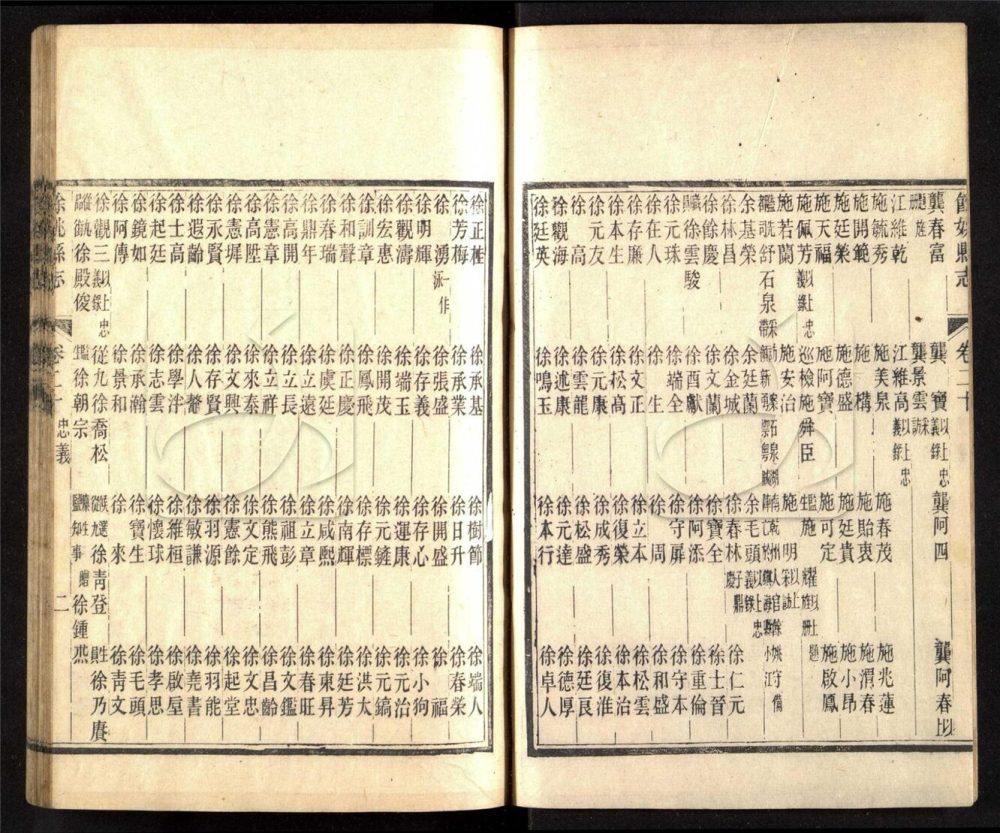 餘姚縣志 卷二十
龔春富 龔寶義錄以上忠 龔阿四 龔阿春以上
題旌 龔景雲采訪
江維乾 江維高義錄以上忠
施毓秀 施美泉 施春茂 施兆蓮
施開範 施構 施貽衷 施渭春
施廷榮 施德盛 施廷貴 施小昂
施天福 施阿寶 施可定 施啟鳳
施佩芳義錄以上忠 巡檢施舜臣 監施耀以上册題旌
施若蘭 施安治 施明以上采訪
余基榮 余廷蘭 余毛頭義錄以上忠
徐林昌 徐金城 徐春林子鼎慶 徐仁元
徐餘慶 徐文蘭 徐寶全 徐士晉
徐雲駿 徐酉獻 徐阿添 徐重倫
徐元珠 徐端全 徐守屏 徐守本
徐在人 徐生 徐周 徐和盛
徐存廉 徐文正 徐立本 徐松雲
徐本生 徐松高 徐復榮 徐本治
徐元友 徐元康 徐成秀 徐復淮
徐高 徐雲龍 徐松盛 徐廷良
徐觀海 徐述康 徐元達 徐德厚
徐廷英 徐鳴玉 徐本行 徐卓人
徐正桂 徐承基 徐樹節 徐瑞人
徐芳梅 徐承業 徐日升 徐春榮
徐湧一作泳 徐張盛 徐開盛 徐福
徐明輝 徐存義 徐存心 徐小狗
徐觀濤 徐瑞玉 徐運康 徐元治
徐宏惠 徐開茂 徐元鏈 徐元鎬
徐訓章 徐鳳飛 徐存標 徐洪太
徐和聲 徐正慶 徐南輝 徐廷芳
徐春瑞 徐虞廷 徐咸熙 徐東昇
徐鼎年 徐立遠 徐立章 徐春旺
徐高開 徐立長 徐祖彭 徐文鑑
徐憲章 徐立祥 徐熊飛 徐昌齡
徐高陞 徐來泰 徐文定 徐文忠
徐憲墀 徐文興 徐憲餘 徐起堂
徐永賢 徐存賢 徐羽源 徐羽能
徐遐齡 徐人聲 徐敏謙 徐堯書
徐士高 徐學泮 徐維桓 徐啟屋
徐起廷 徐志雲 徐懷球 徐孝思
徐鏡如 徐承瀚 徐寶生 徐毛頭
徐阿傳 徐景和 徐來 徐靑文
徐觀三義錄以上忠 從九徐喬松 候選從九徐靑登 監生徐乃賡
徐殿俊 監生徐朝宗 徐鍾燕
餘姚縣志 卷二十 忠義 二